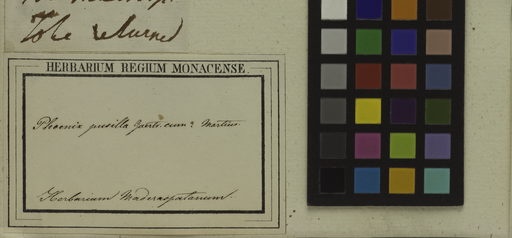 To be returned
HERBARIUM REGIUM MONACENSE.
Phoenix pusilla Gaertn. cum? Martius
Herbarium Maderaspatanum.